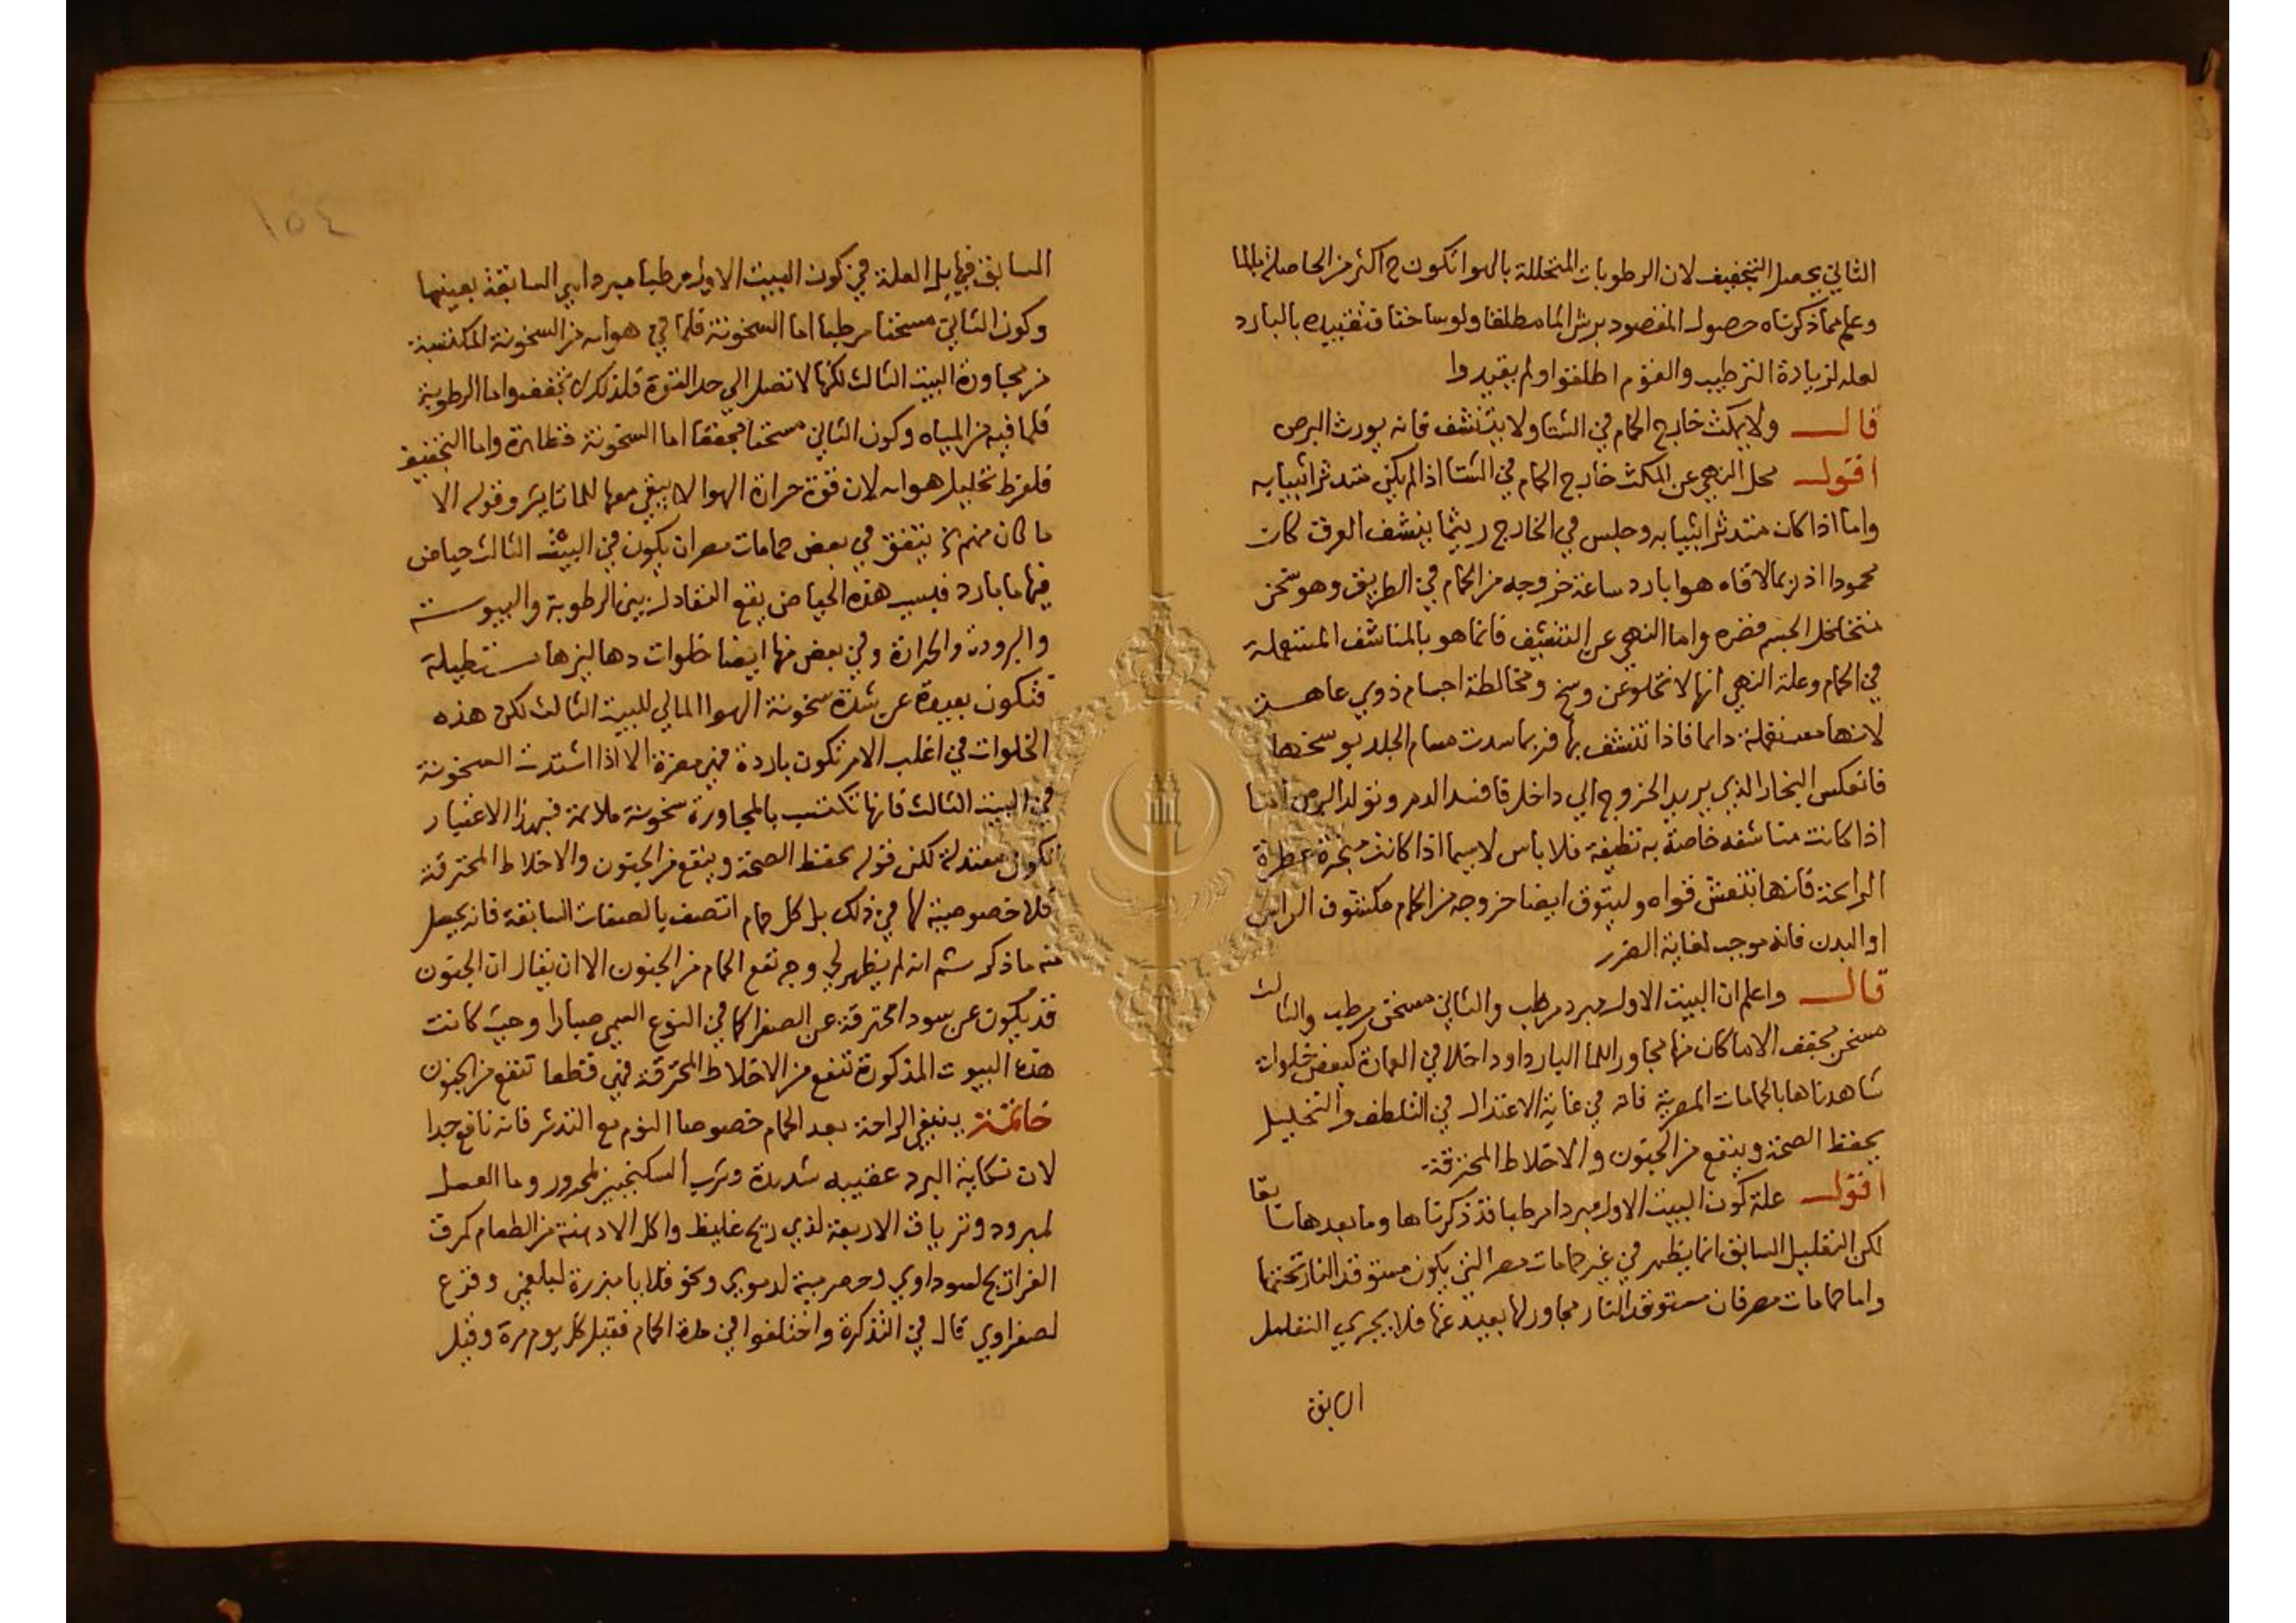 الثاني يحصل التجفيف لان الرطوبات المتحللة بالهوا تكون ح اكثر من الحاصلة بالما
وعلم مما ذكرناه حصول المقصود برش الما مطلقا ولو ساخنا فتقييده بالبارد
لعله لزيادة الترطيب والقوم اطلقوا ولم يقيدوا
قال ولا يمكث خارج الحمام في الشتا ولا يتنشف فانه يورث البرص
اقول محل النهي عن المكث خارج الحمام في الشتا اذا لم يكن متدثرا بثيابه
واما اذا كان متدثرا بثيابه وجلس في الخارج ريثما ينشف العرق كان
محمودا اذ ربما لاقاه هوا بارد ساعة خروجه من الحمام في الطريق وهو سخن
متخلخل الجسم فضره واما النهي عن التنشيف فانما هو بالمناشف المستعملة
في الحمام وعلة النهي انها لا تخلو عن وسخ ومخالطة اجسام ذوي عاهة
لانها مستعملة دايما فاذا تنشف بها فربما سدت مسام الجلد بوسخها
فانعكس البخار الذي يريد الخروج الي داخل فافسد الدم وتولد البرص اما
اذا كانت مناشفه خاصة به نظيفة فلا باس لاسيما اذا كانت مبخرة عطرة
الرايحة فانها تنعش قواه وليتوق ايضا خروجه من الحمام مكشوف الراس
او البدن فانه موجب لغاية الضرر
قال واعلم ان البيت الاول مبرد مرطب والثاني مسخن مرطب والثالث
مسخن مجفف الا ما كان منها مجاورا للما البارد او داخلا في العمارة كبعض خلوات
شاهدناها بالحمامات المصرية فانه في غاية الاعتدال في التلطف والتحليل
يحفظ الصحة وينفع من الجنون والاخلاط المحترقة
اقول علة كون البيت الاول مبردا مرطبا قد ذكرناها وما بعدها سابقا
لكن التعليل السابق انما يظهر في غير حمامات مصر التي يكون مستوقد النار تحتها
واما حمامات مصر فان مستوقد النار مجاور لها بعيد عنها فلا يجري التعليل
السابق
١٥٤
السابق فيها بل العلة في كون البيت الاول مرطبا مبردا هي السابقة بعينها
وكون الثاني مسخنا مرطبا اما السخونة فلما في هوايه من السخونة المكتسبة
من مجاورة البيت الثالث لكنها لا تصل الي حد القوة فلذلك لا تجفف واما الرطوبة
فلما فيه من المياه وكون الثالث مسخنا مجففا اما السخونة فظاهرة واما التجفيف
فلفرط تحليل هوايه لان قوة حرارة الهوا لا يبقي معها للما تاثير وقوله الا
ما كان منهم الخ يتفق في بعض حمامات مصر ان يكون في البيت الثالث حياض
فيها ما بارد فبسبب هذه الحياض يقع التعادل بين الرطوبة واليبوسة
والبرودة والحرارة وفي بعض منها ايضا خلوات دهاليزها مستطيلة
فتكون بعيدة عن شدة سخونة الهوا المالي للبيت الثالث لكن هذه
الخلوات في اغلب الامر تكون باردة فهي مضرة الا اذا اشتدت السخونة
في البيت الثالث فانها تكتسب بالمجاورة سخونة ملايمة فبهذا الاعتبار
تكون معتدلة لكن قوله يحفظ الصحة وينفع من الجنون والاخلاط المحترقة
فلا خصوصية لها في ذلك بل كل حمام اتصف بالصفات السابقة فانه يحصل
منه ما ذكر ثم انه لم يظهر لي وجه نفع الحمام من الجنون الا ان يقال ان الجنون
قد يكون عن سودا محترقة عن الصفرا كما في النوع المسمي صبارا وحيث كانت
هذه البيوت المذكورة تنفع من الاخلاط المحترقة فهي قطعا تنفع من الجنون
خاتمة ينبغي الراحة بعد الحمام خصوصا النوم مع التدثر فانه نافع جدا
لان نكاية البرد عقيبه شديدة وشرب السكنجبين لمحرور وما العسل
لمبرود وترياق الاربعة لذي ريح غليظ واكل الادهنة من الطعام كمرق
الفراريج لسوداوي وحصرمية لدموي ونحو قلايا مبزرة لبلغمي وقرع
لصفراوي قال في التذكرة واختلفوا في مدة الحمام فقيل كل يوم مرة وقيل